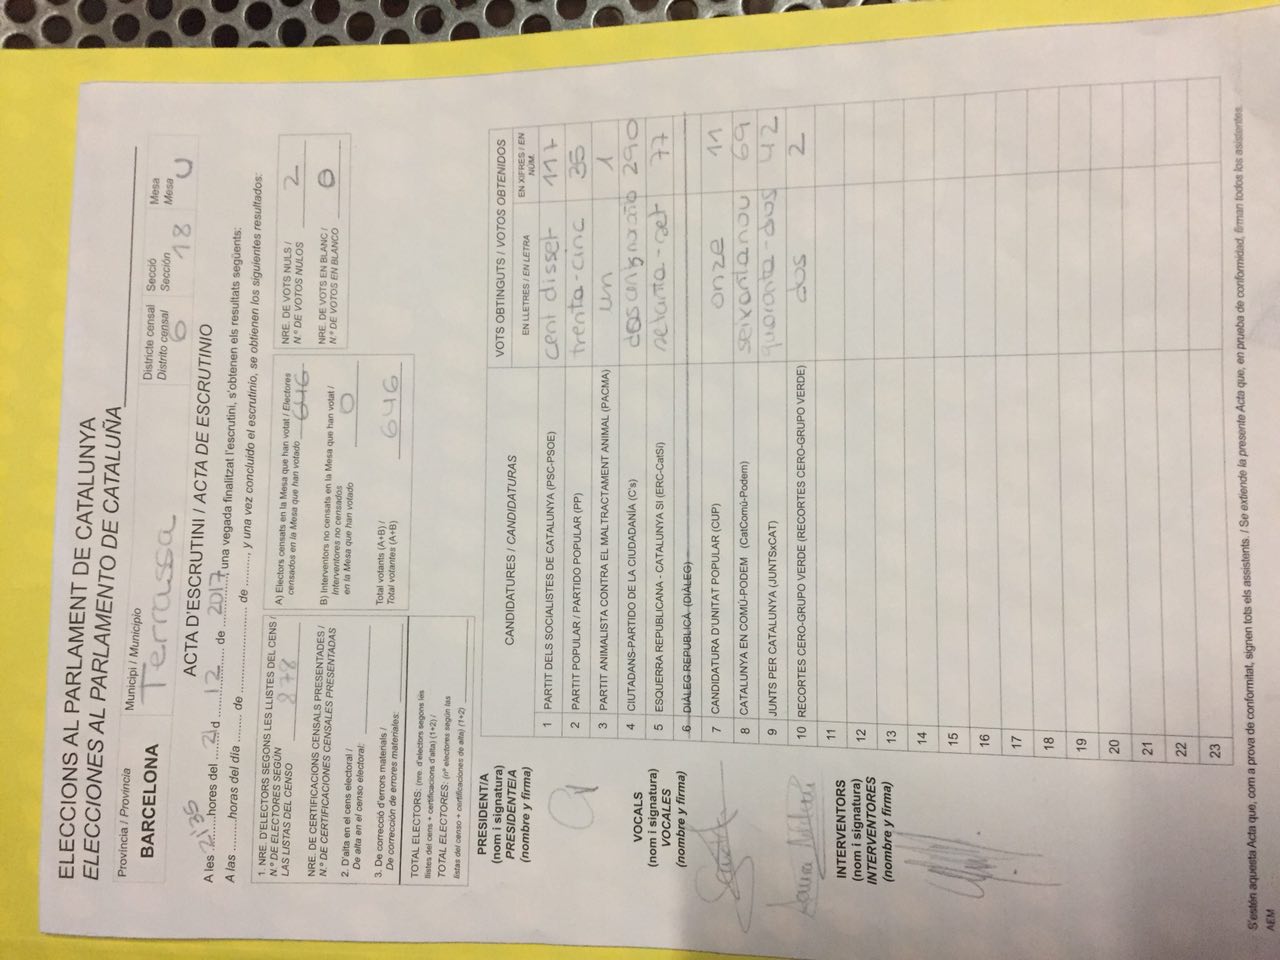 ELECCIONS AL PARLAMENT DE CATALUNYA
ELECCIONES AL PARLAMENTO DE CATALUÑA
Província / Provincia
BARCELONA
Municipi / Municipio
Terrassa
Districte censal
Distrito censal
6
Secció
Sección
18
Mesa
Mesa
U
ACTA D'ESCRUTINI / ACTA DE ESCRUTINIO
A les 21:35 hores del 21 d 12 de 2017, una vegada finalitzat l'escrutini, s'obtenen els resultats següents:
A las ......... horas del día ........ de .................... de .........., y una vez concluido el escrutinio, se obtienen los siguientes resultados:
1. NRE. D'ELECTORS SEGONS LES LLISTES DEL CENS /
N.º DE ELECTORES SEGÚN
LAS LISTAS DEL CENSO 878
NRE. DE CERTIFICACIONS CENSALS PRESENTADES /
N.º DE CERTIFICACIONES CENSALES PRESENTADAS
2. D'alta en el cens electoral /
De alta en el censo electoral:
3. De correcció d'errors materials /
De corrección de errores materiales:
TOTAL ELECTORS: (nre. d'electors segons les
llistes del cens + certificacions d'alta) (1+2) /
TOTAL ELECTORES: (nº electores según las
listas del censo + certificaciones de alta) (1+2)
A) Electors censats en la Mesa que han votat / Electores
censados en la Mesa que han votado 646
B) Interventors no censats en la Mesa que han votat /
Interventores no censados
en la Mesa que han votado 0
Total votants (A+B) /
Total votantes (A+B) 646
NRE. DE VOTS NULS /
N.º DE VOTOS NULOS 2
NRE. DE VOTS EN BLANC /
N.º DE VOTOS EN BLANCO 0
CANDIDATURES / CANDIDATURAS
VOTS OBTINGUTS / VOTOS OBTENIDOS
EN LLETRES / EN LETRA
EN XIFRES / EN NÚM.
1 PARTIT DELS SOCIALISTES DE CATALUNYA (PSC-PSOE) cent disset 117
2 PARTIT POPULAR / PARTIDO POPULAR (PP) trenta-cinc 35
3 PARTIT ANIMALISTA CONTRA EL MALTRACTAMENT ANIMAL (PACMA) un 1
4 CIUTADANS-PARTIDO DE LA CIUDADANÍA (C's) 290
5 ESQUERRA REPUBLICANA - CATALUNYA SÍ (ERC-CatSí) setanta-set 77
6 DIÀLEG REPUBLICÀ (DIÀLEG)
7 CANDIDATURA D'UNITAT POPULAR (CUP) onze 11
8 CATALUNYA EN COMÚ-PODEM (CatComú-Podem) seixantanou 69
9 JUNTS PER CATALUNYA (JUNTSxCAT) quaranta-dos 42
10 RECORTES CERO-GRUPO VERDE (RECORTES CERO-GRUPO VERDE) dos 2
11
12
13
14
15
16
17
18
19
20
21
22
23
PRESIDENT/A
(nom i signatura)
PRESIDENTE/A
(nombre y firma)
VOCALS
(nom i signatura)
VOCALES
(nombre y firma)
INTERVENTORS
(nom i signatura)
INTERVENTORES
(nombre y firma)
S'estén aquesta Acta que, com a prova de conformitat, signen tots els assistents. / Se extiende la presente Acta que, en prueba de conformidad, firman todos los asistentes.
AEM